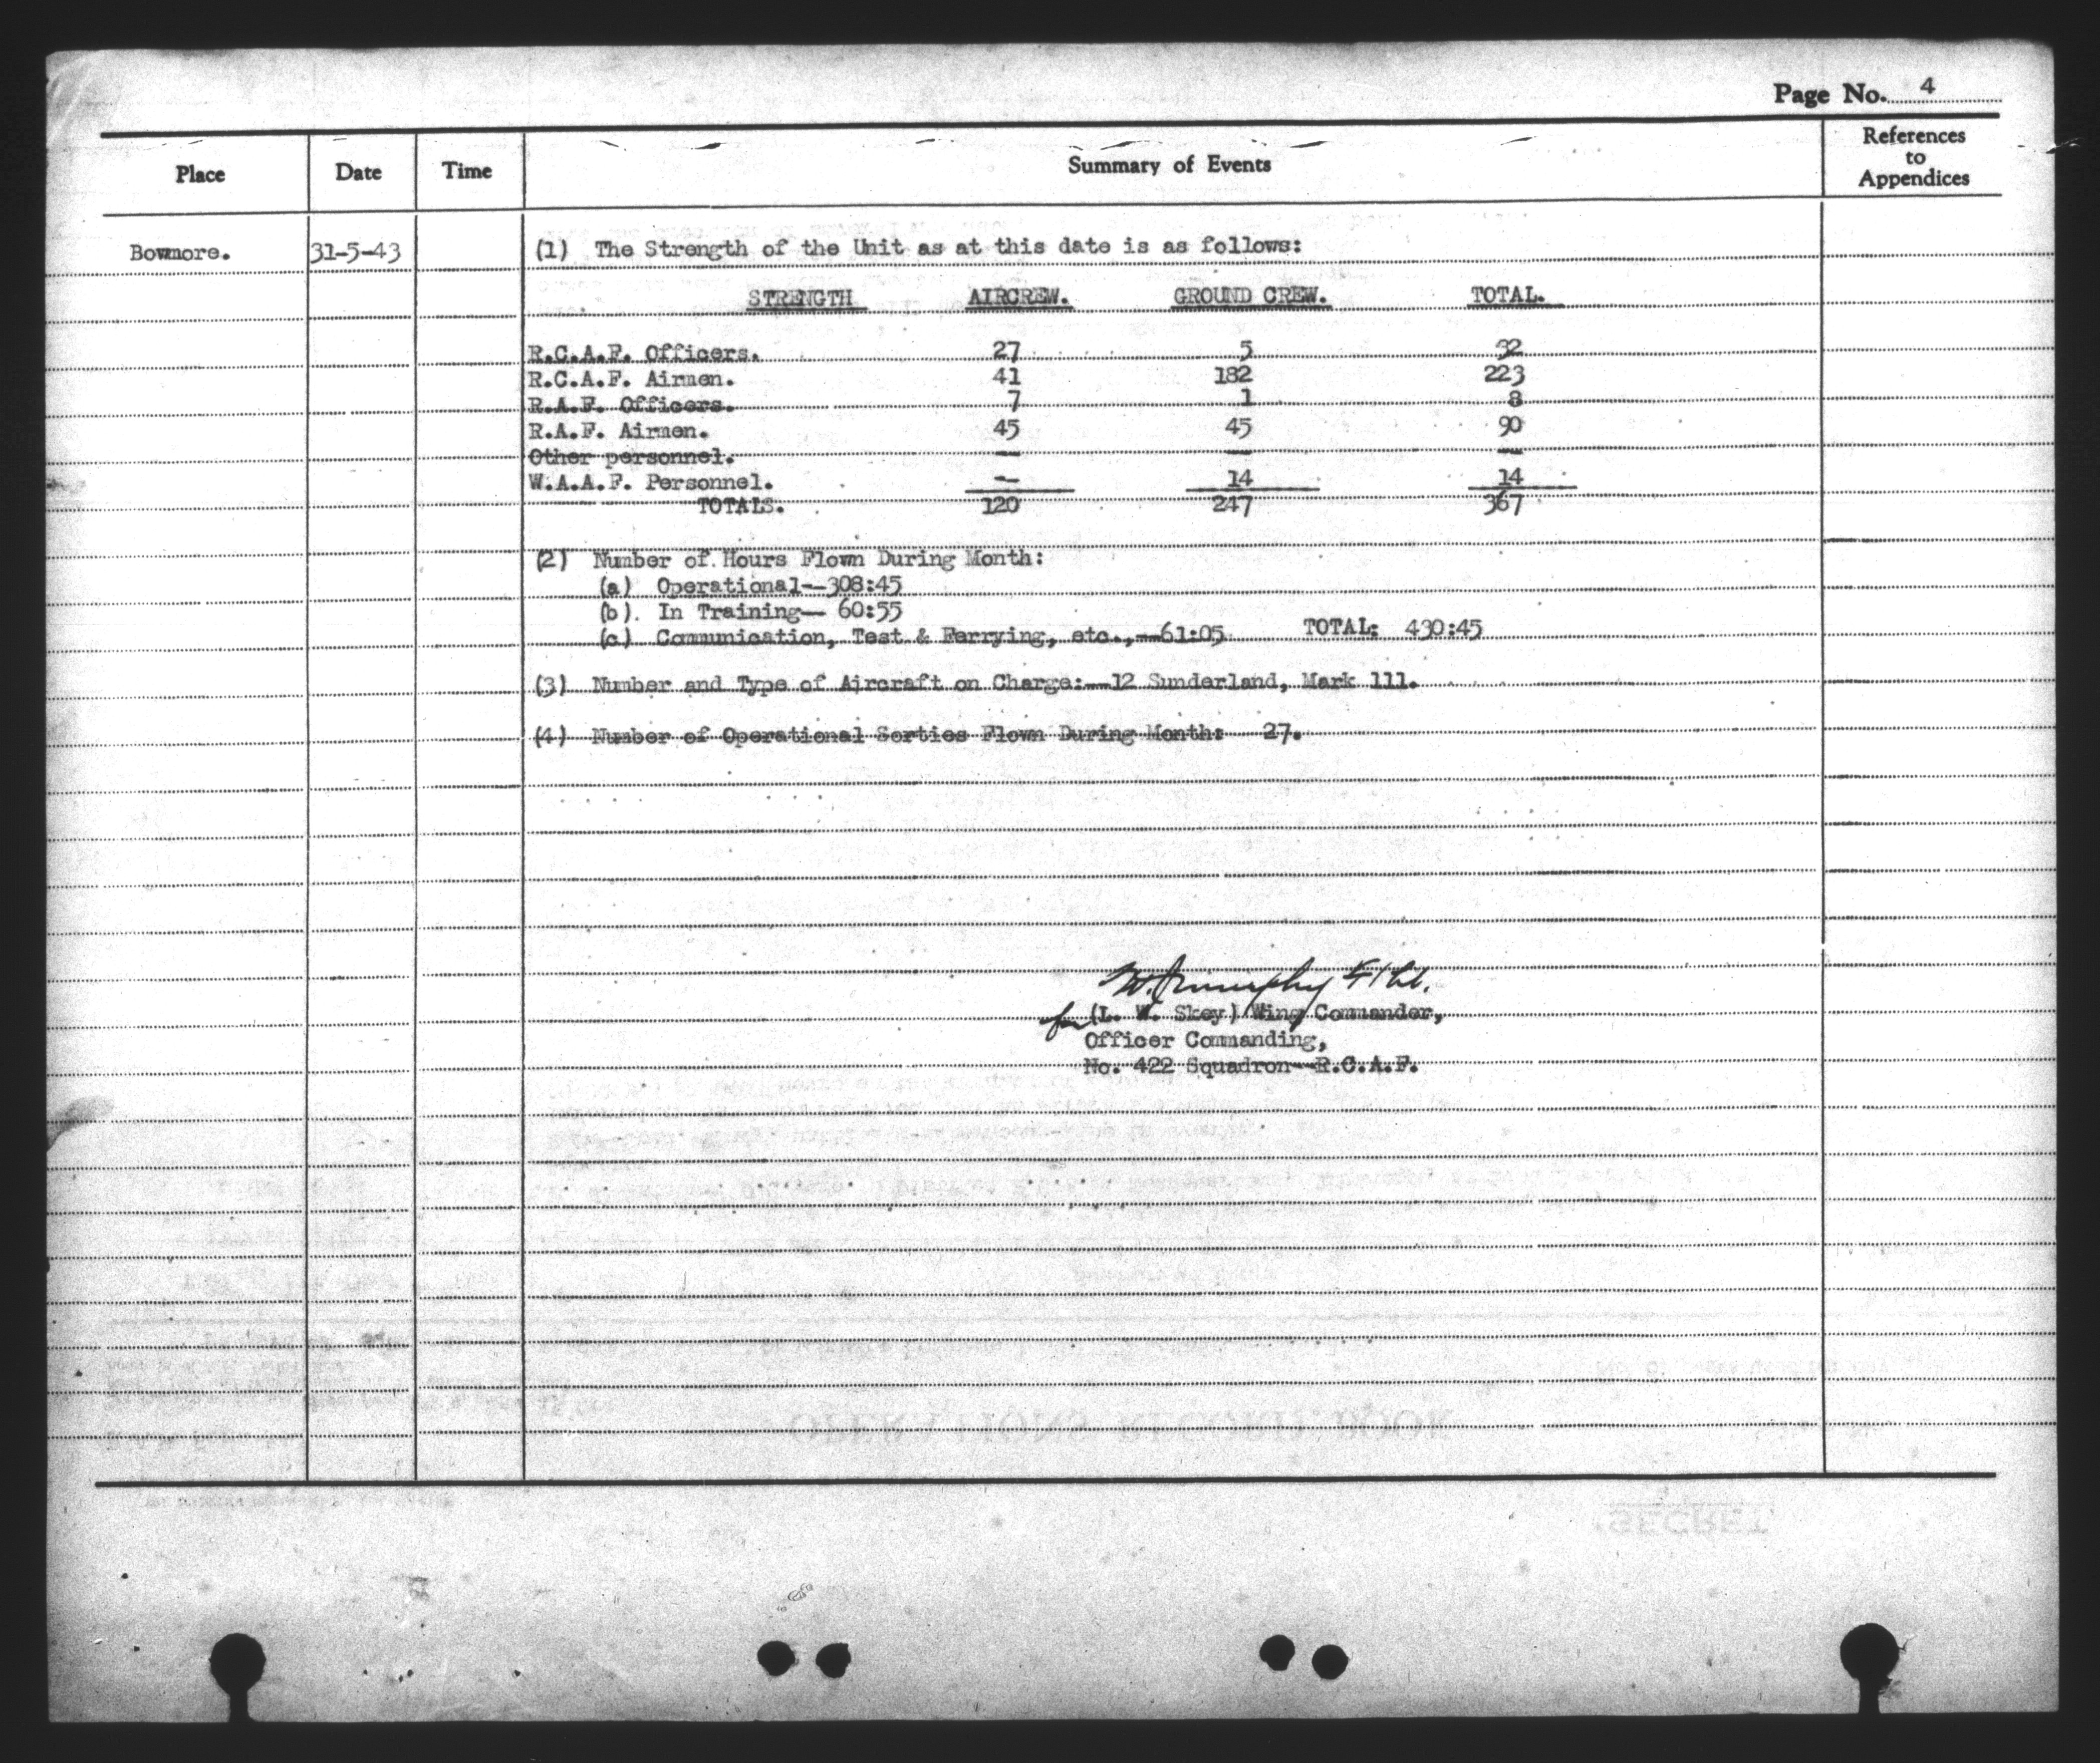 Page No. 4
Place Date Time Summary of Events References to Appendices
Bowmore. 31-5-43 (1) The Strength of the Unit as at this date is as follows:
STRENGTH AIRCREW. GROUND CREW. TOTAL.
R.C.A.F. Officers. 27 5 32
R.C.A.F. Airmen. 41 182 223
R.A.F. Officers. 7 1 8
R.A.F. Airmen. 45 45 90
Other personnel. — — —
W.A.A.F. Personnel. — 14 14
TOTALS. 120 247 367
(2) Number of Hours Flown During Month:
(a) Operational--308:45
(b). In Training-- 60:55
(c) Communication, Test & Ferrying, etc.,--61:05 TOTAL: 430:45
(3) Number and Type of Aircraft on Charge:--12 Sunderland, Mark 111.
(4) Number of Operational Sorties Flown During Month: 27.
Murphy F/Lt.
for (L. W. Skey) Wing Commander,
Officer Commanding,
No. 422 Squadron--R.C.A.F.
OPERATIONS RECORD BOOK
SECRET